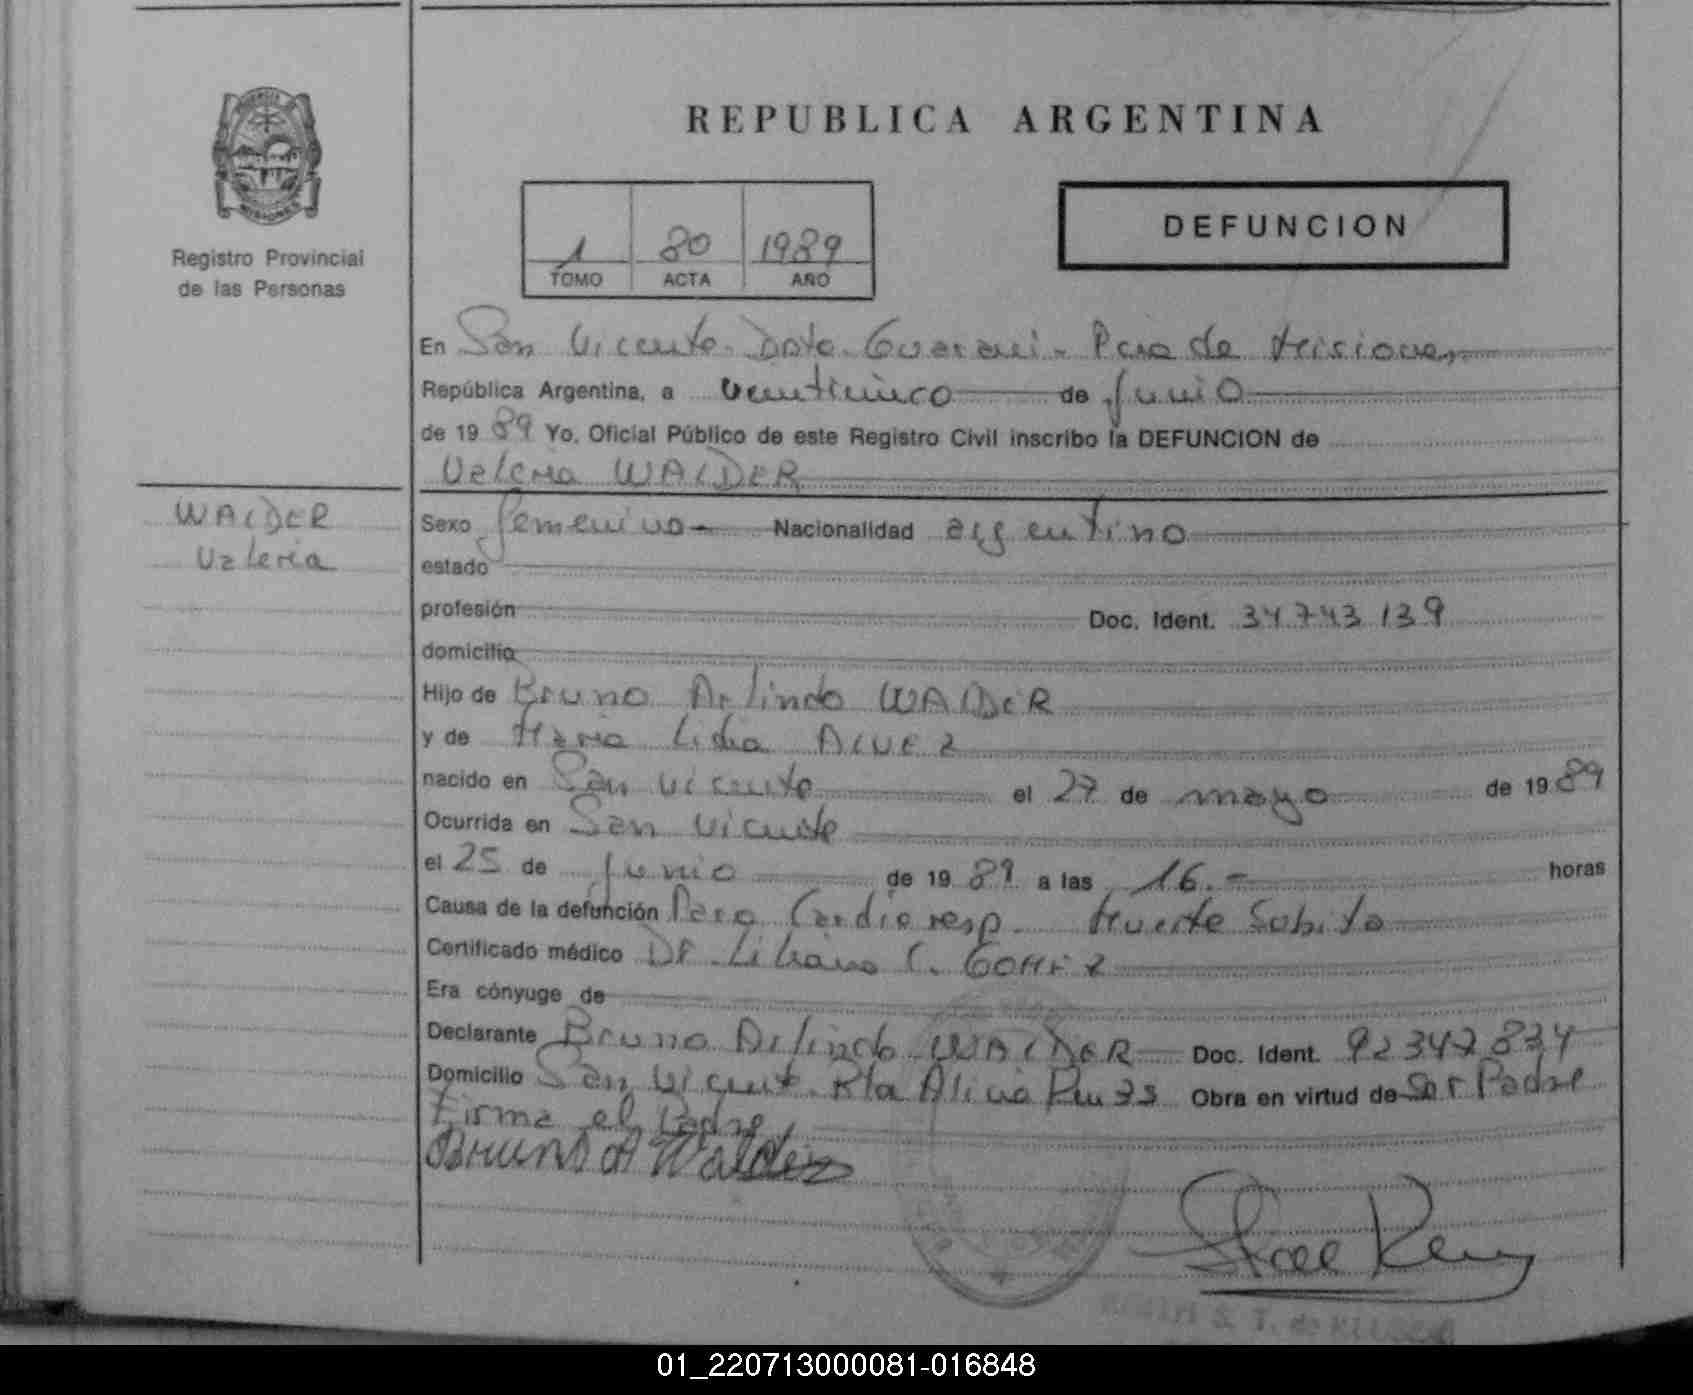 REPUBLICA ARGENTINA
PROVINCIA DE
MISIONES
Registro Provincial
de las Personas
1 80 1989
TOMO ACTA AÑO
DEFUNCION
En San Vicente. Dpto. Guarani. Pcia de Misiones,
República Argentina, a veinticinco de Junio
de 1989 Yo, Oficial Público de este Registro Civil inscribo la DEFUNCION de
Valeria WALDER
WALDER
Valeria
Sexo femenino Nacionalidad argentino
estado
profesión Doc. Ident. 34.743.139
domicilio
Hijo de Bruno Arlindo WALDER
y de Maria Lidia ALVEZ
nacido en San Vicente el 27 de mayo de 1989
Ocurrida en San Vicente
el 25 de Junio de 1989 a las 16.- horas
Causa de la defunción Paro Cardio resp. Muerte Subita
Certificado médico Dr. Liliana C. GOMEZ
Era cónyuge de
Declarante Bruno Arlindo WALDER Doc. Ident. 92.347.834
Domicilio San Vicente. Rta Alicia Obra en virtud de Ser Padre
Firma el Padre
Bruno A Walder
S. T. de
01_220713000081-016848